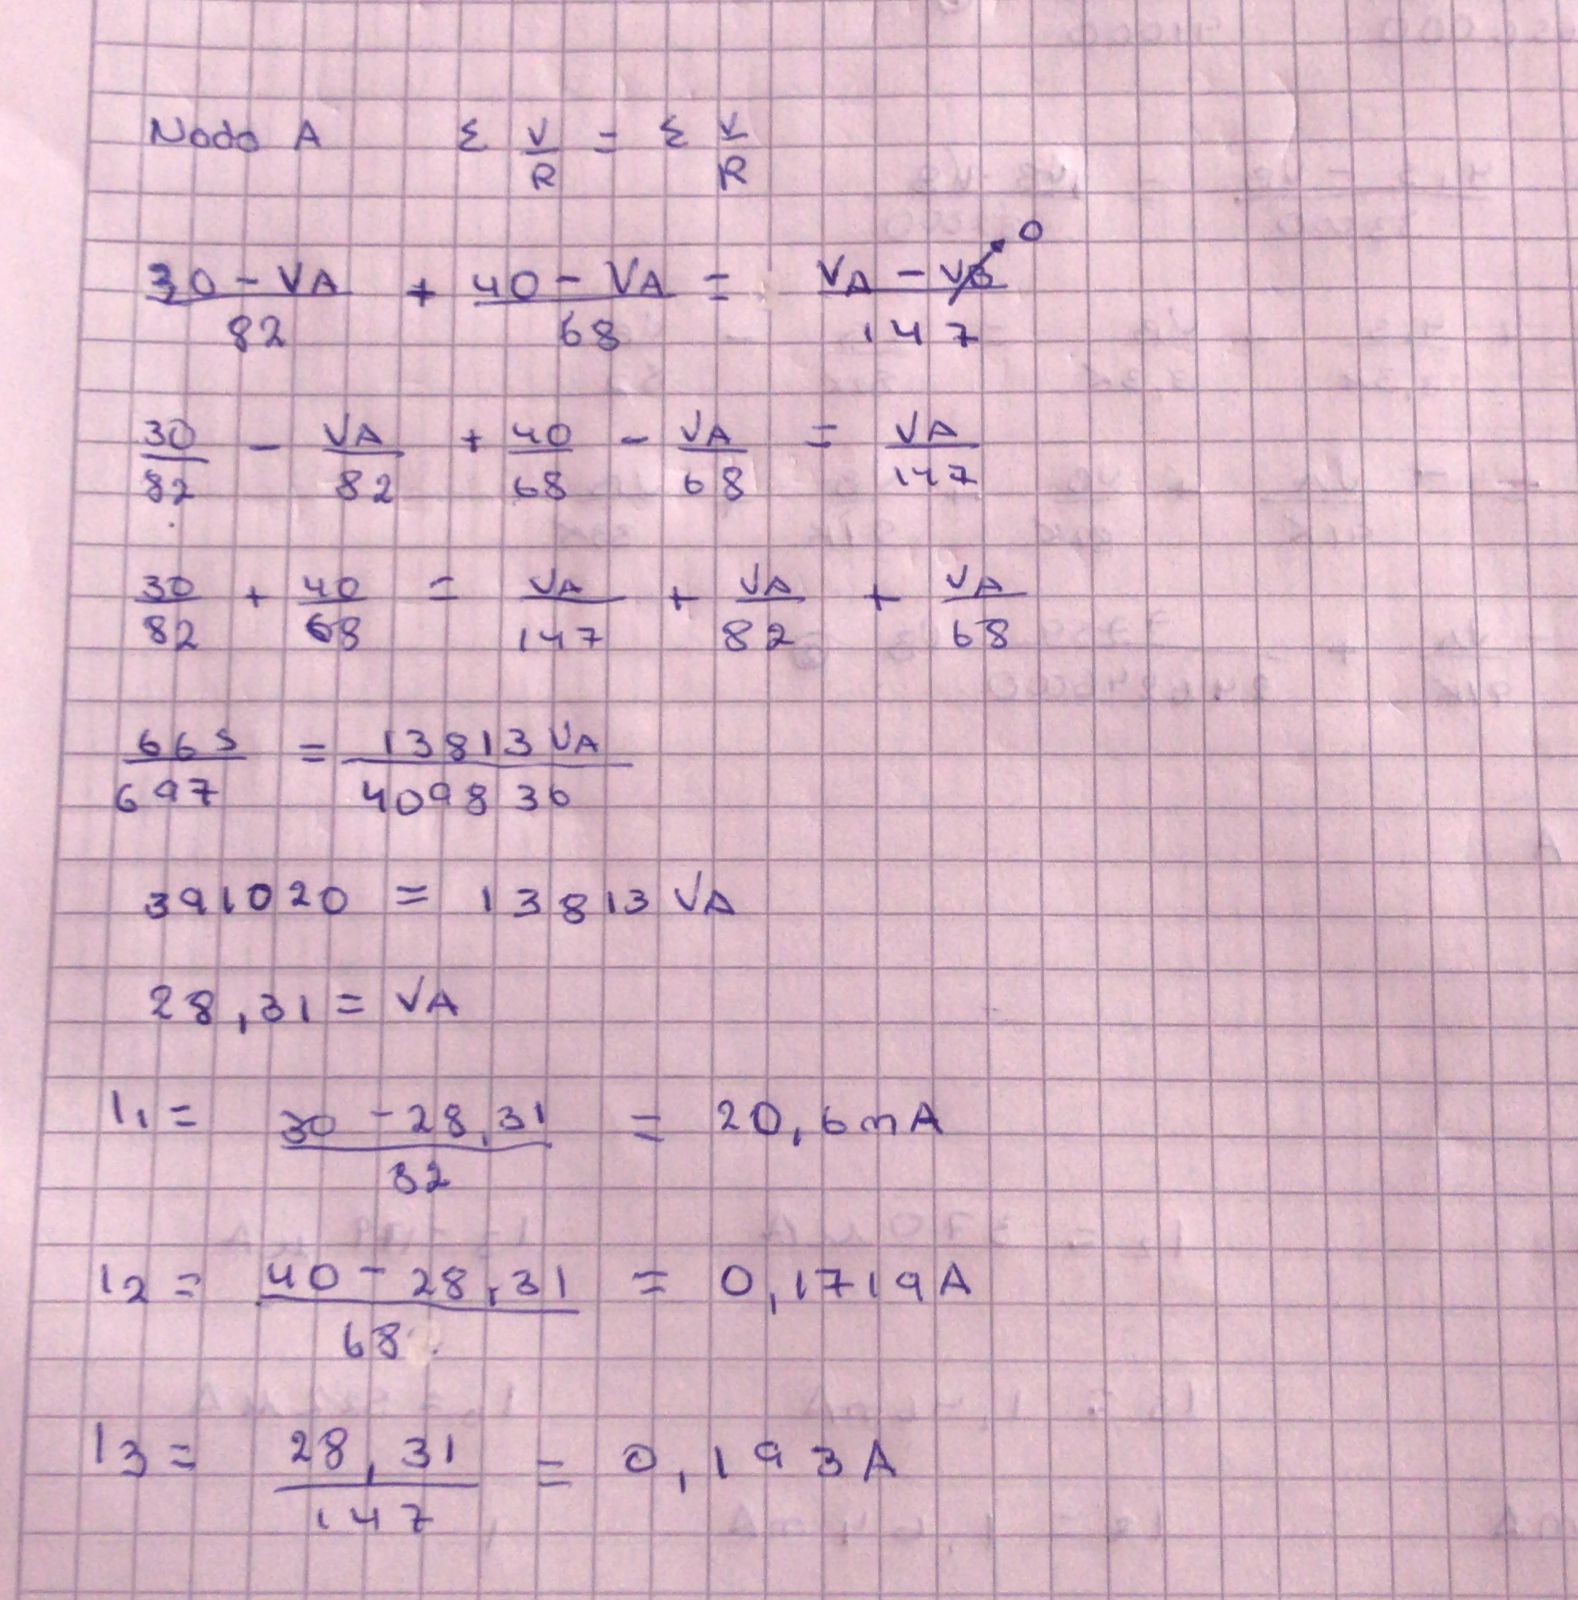 Nodo A Σ V/R = Σ V/R
(30 - VA)/82 + (40 - VA)/68 = (VA - VB)/147 → 0
30/82 - VA/82 + 40/68 - VA/68 = VA/147
30/82 + 40/68 = VA/147 + VA/82 + VA/68
665/697 = 13813 VA/409836
391020 = 13813 VA
28,31 = VA
I1 = (30 - 28,31)/82 = 20,6mA
I2 = (40 - 28,31)/68 = 0,1719A
I3 = 28,31/147 = 0,193A